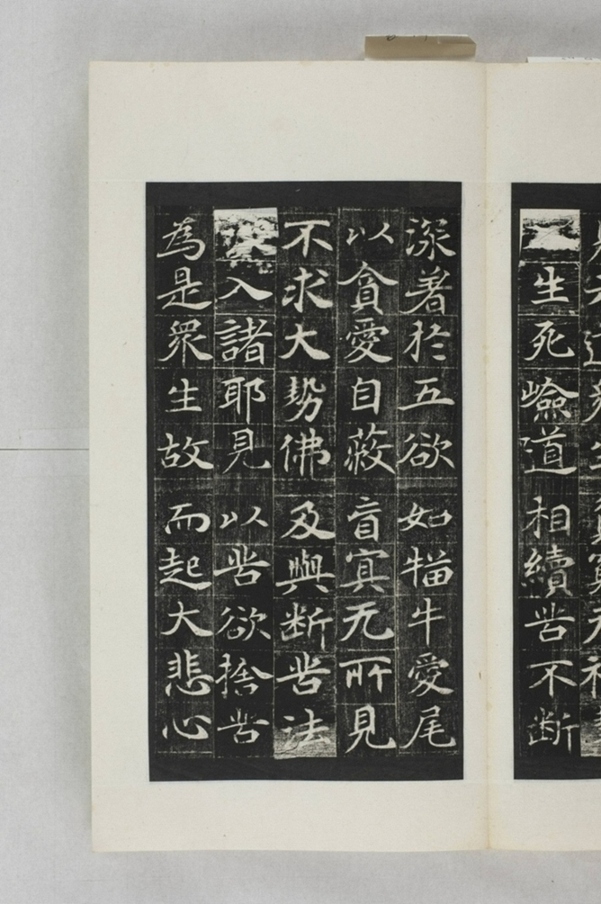 生死嶮道相續苦不断
深著於五欲如犛牛愛尾
以貪愛自蔽盲冥无所見
不求大勢佛及與断苦法
入諸耶見以苦欲捨苦
為是衆生故而起大悲心